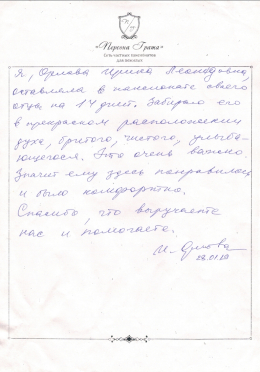 «Персона Грата»
Сеть частных пансионатов
для пожилых
Я, Орлова Ирина Леонидовна,
оставляла в пансионате своего
отца на 14 дней. Забираю его
в прекрасном расположении
духа, бритого, чистого, улыба-
ющегося. Это очень важно.
Значит ему здесь понравилось
и было комфортно.
Спасибо, что выручаете
нас и помогаете.
И. Орлова